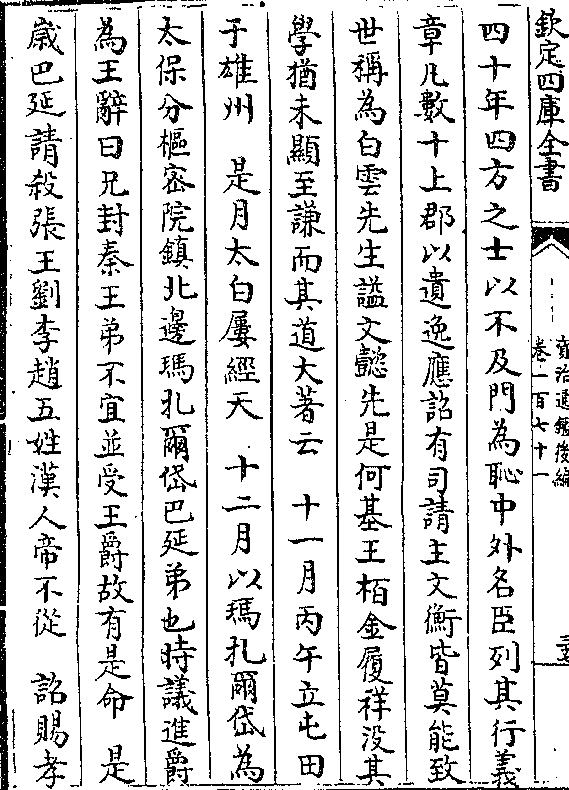 欽定四庫全書
資治通鑑後編
卷一百七十一
四十年四方之士以不及門為恥中外名臣列其行義
章凡數十上郡以遺逸應詔有司請主文衡皆莫能致
世稱為白雲先生諡文懿先是何基王栢金履祥沒其
學猶未顯至謙而其道大著云　十一月丙午立屯田
于雄州　是月太白屢經天　十二月以瑪扎爾岱為
太保分樞密院鎮北邊瑪扎爾岱巴延弟也時議進爵
為王辭曰兄封秦王弟不宜並受王爵故有是命　是
嵗巴延請殺張王劉李趙五姓漢人帝不從　詔賜孝